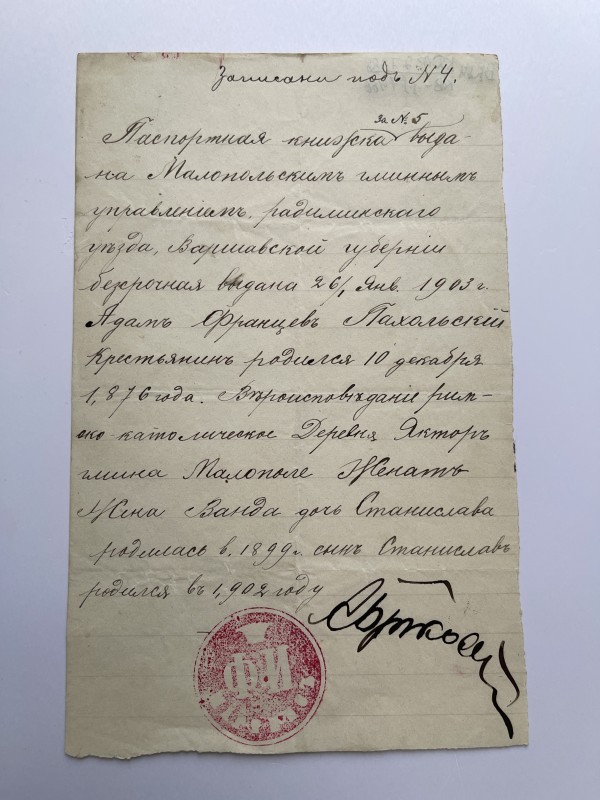 Записани подъ №4.
за №5
Паспортная книжка выда-
на Малопольскимъ гминнымъ
управленіемъ, радиминскаго
уѣзда, Варшавской губерніи
безсрочная выдана 26/1 Янв. 1903 г.
Адамъ Францевъ Пахольскій
Крестьянинъ родился 10 декабря
1,876 года. Вѣроисповѣданіе рим-
ско-католическое Деревня Якторъ
гмина Малополе Женатъ
Жена Ванда дочь Станислава
родилась в. 1899 г. сынъ Станиславъ
родился въ 1,902 году
Ф.И